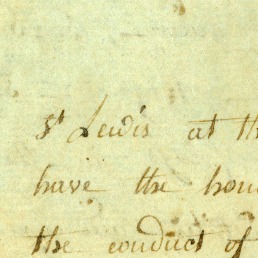 St Lewis at th
have the hon
the conduct of